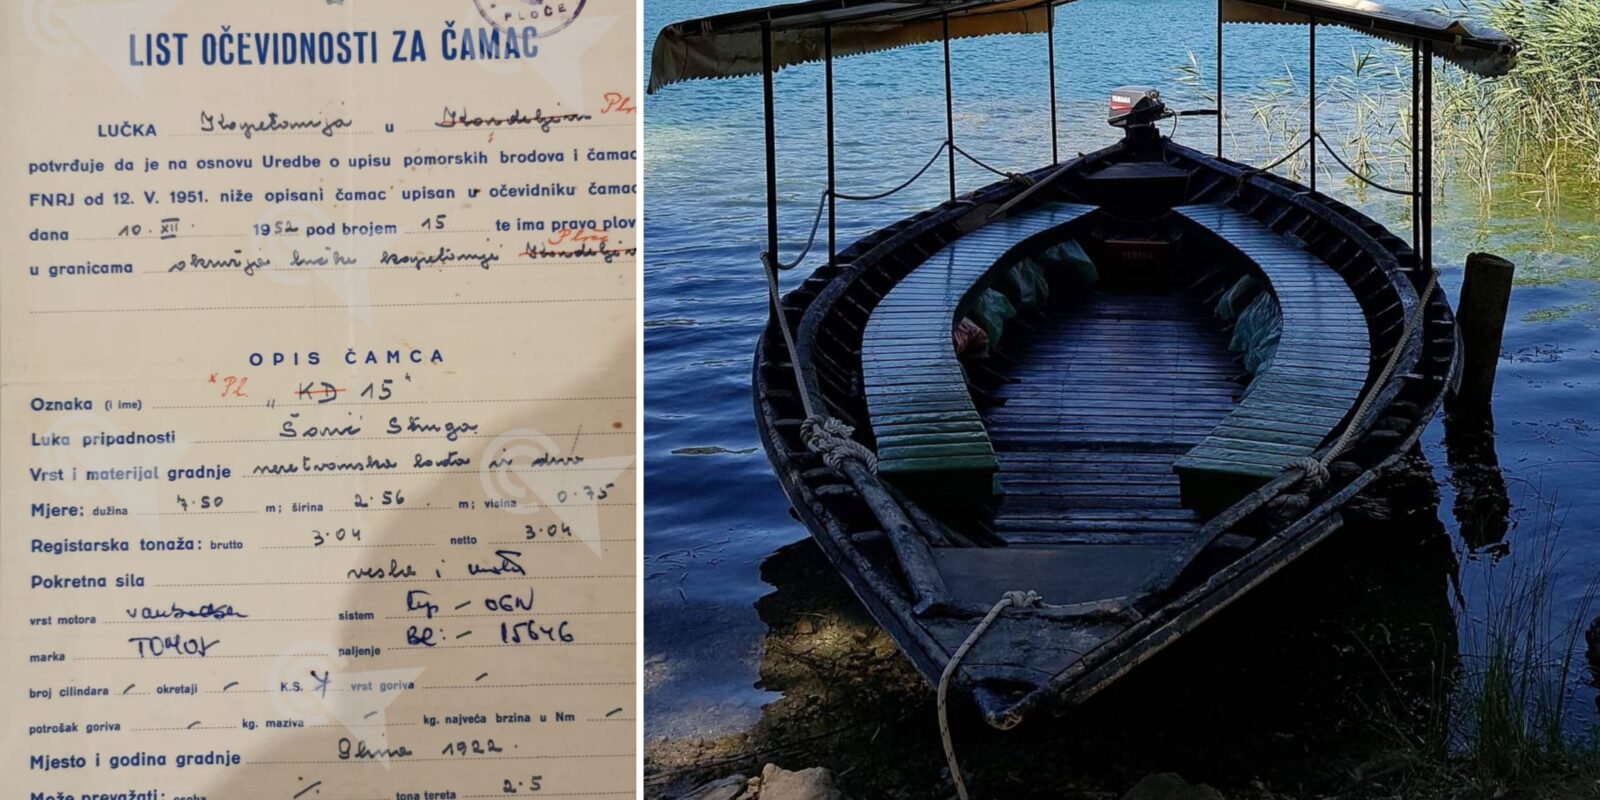 PLOČE
LIST OČEVIDNOSTI ZA ČAMAC
LUČKA Kapetanija u
potvrđuje da je na osnovu Uredbe o upisu pomorskih brodova i čamac
FNRJ od 12. V. 1951. niže opisani čamac upisan u očevidniku čamac
dana 10. XII 1952 pod brojem 15 te ima pravo plov
u granicama okružja lučke kapetanije
OPIS ČAMCA
Oznaka (i ime) x Pl. „KD 15"
Luka pripadnosti Šarić Struga
Vrst i materijal gradnje neretvanska lađa drvo
Mjere: dužina 7.50 m; širina 2.56 m; visina 0.75
Registarska tonaža: brutto 3.04 netto 3.04
Pokretna sila vesla i
vrst motora sistem Tip - OGN
marka TOMOS paljenje BR: - 15646
broj cilindara / okretaji / K.S. vrst goriva /
potrošak goriva / kg. maziva / kg. najveća brzina u Nm /
Mjesto i godina gradnje 1922.
Može prevažati: osoba tona tereta 2.5
YAMAHA
YAMAHA